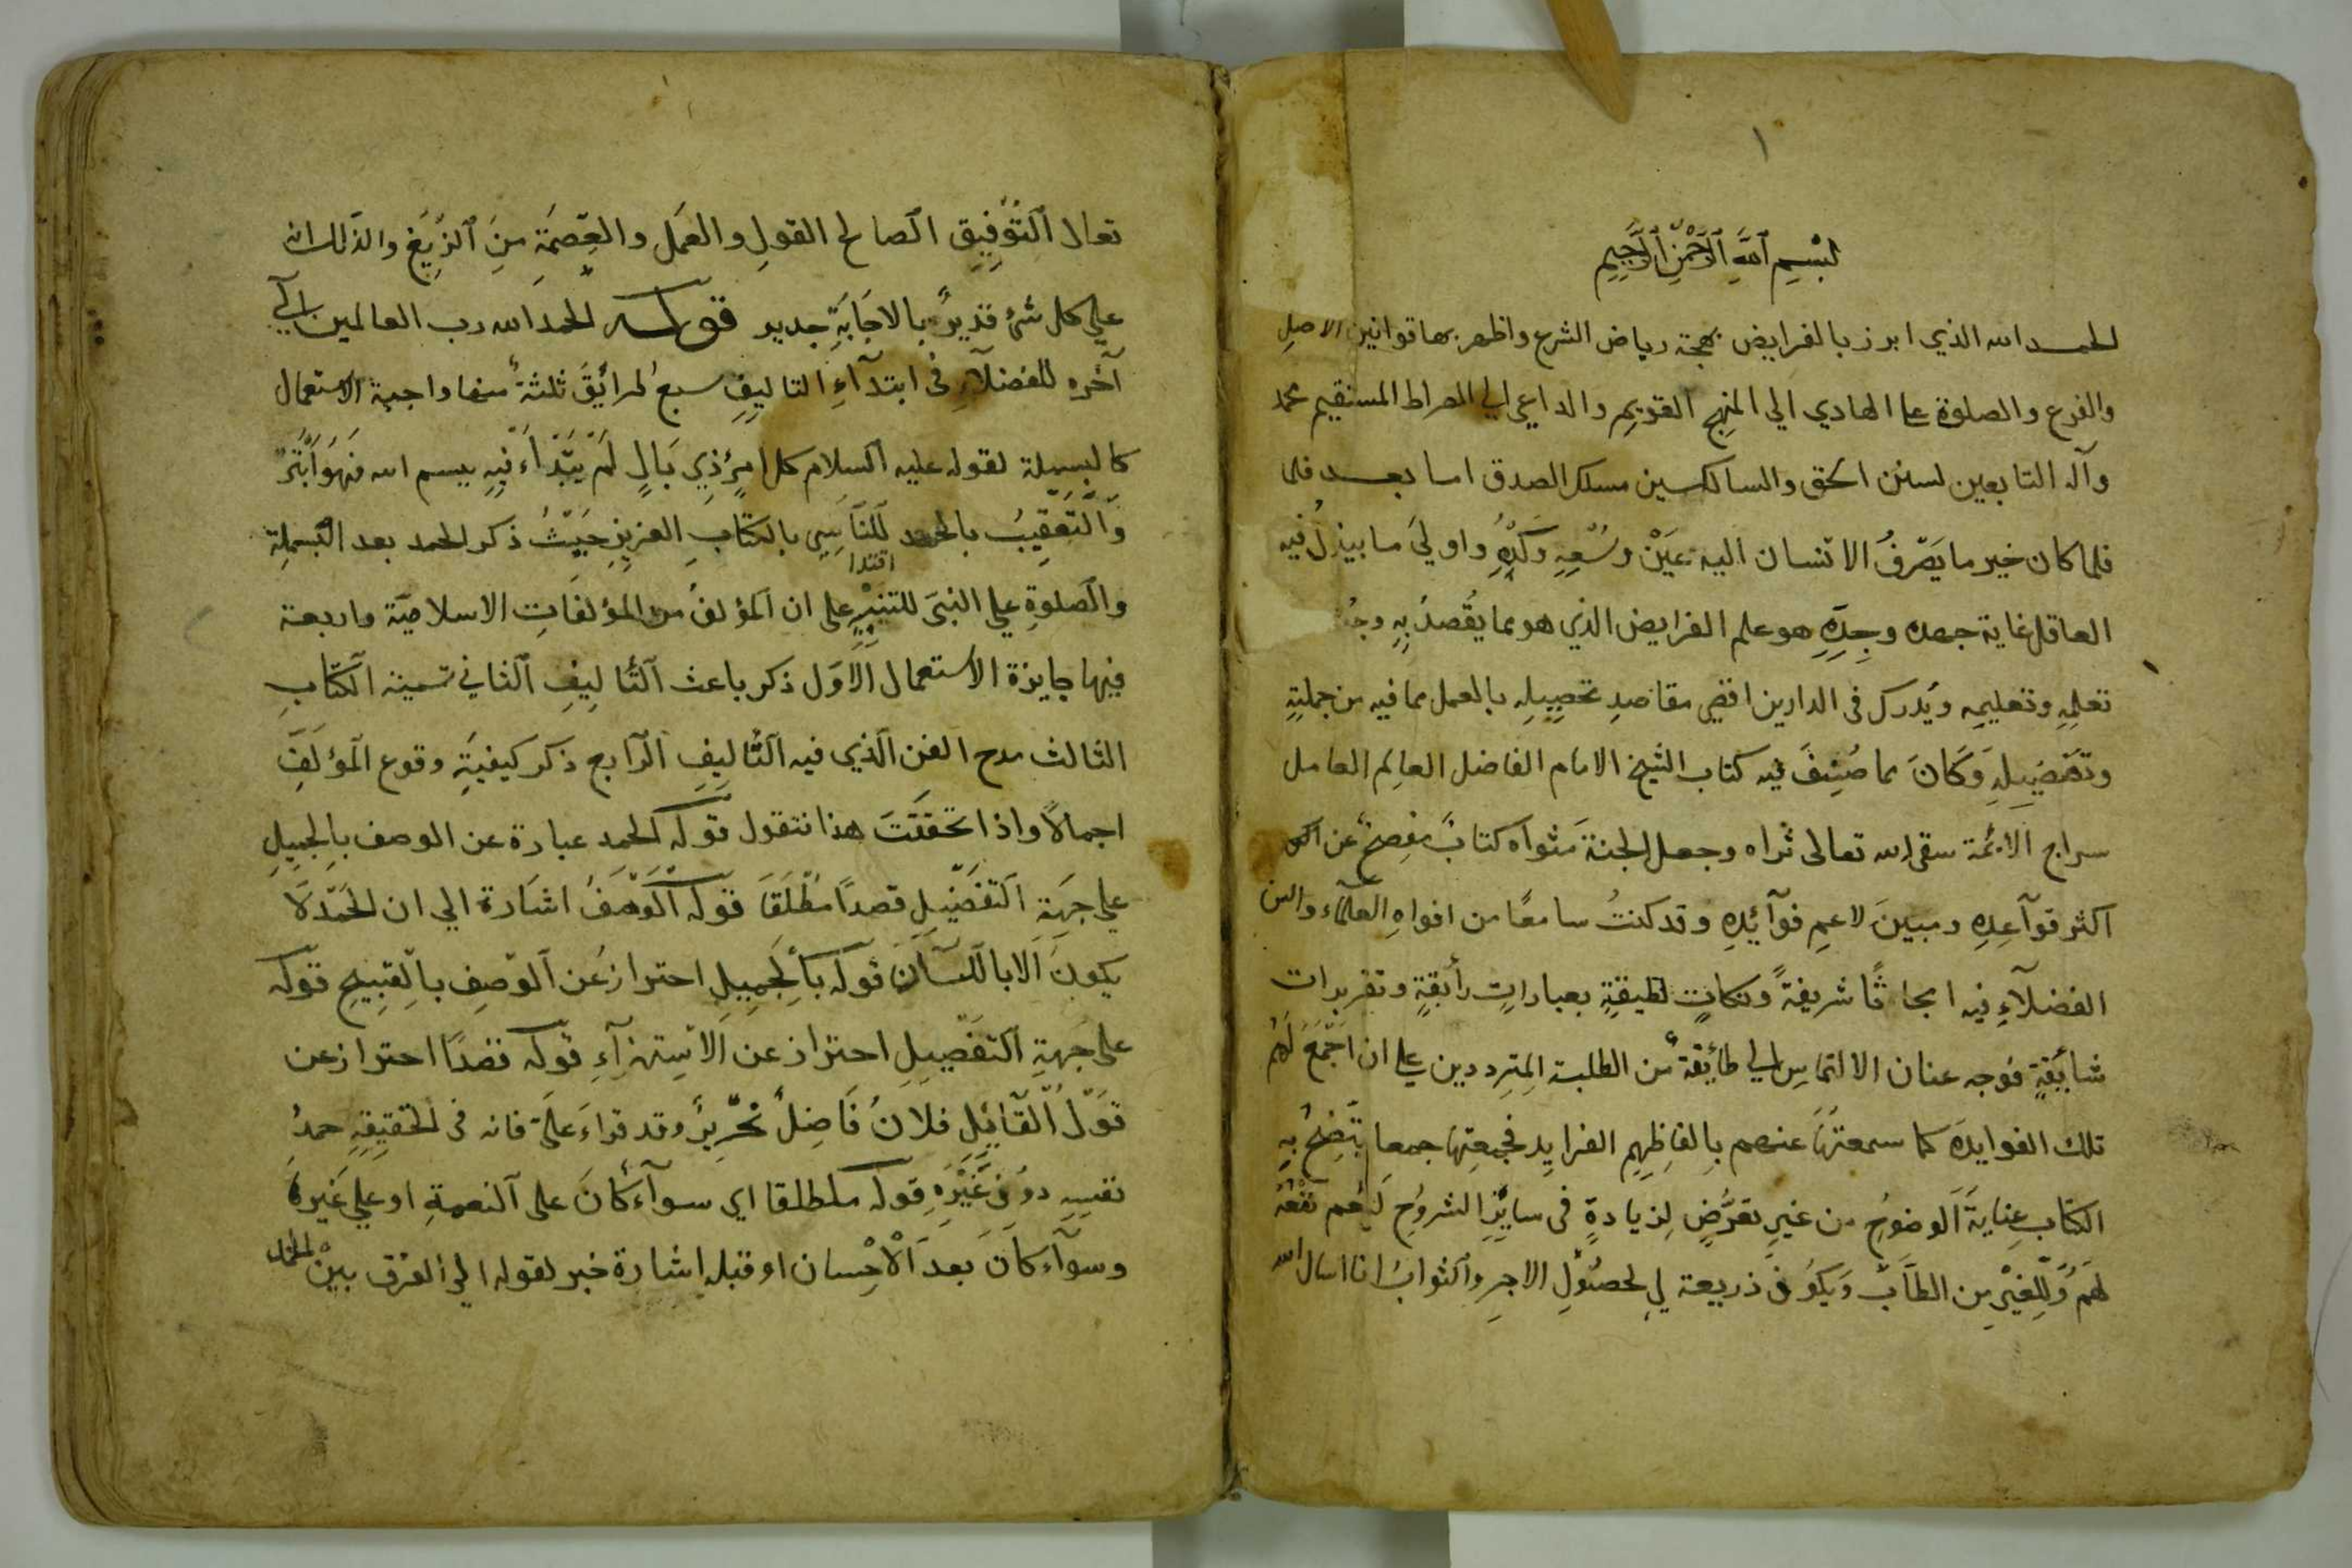 ١
بسم الله الرحمن الرحيم
الحمد لله الذي ابرز بالفرايض بهجة رياض الشرع واظهر بها قوانين الاصل
والفرع والصلوة على الهادي الي المنهج القويم والداعي الي الصراط المستقيم محمد
وآله التابعين لسنن الحق والسالكين مسلك الصدق اما بعد فلما
فلما كان خير ما يَصْرِفُ الانسان اليه عين وُسْعِهِ وكَدِّهِ واولي ما يبذلُ فيه
العاقل غاية جهده وجِدِّهِ هو علم الفرايض الذي هو مما يُقصدُ بِهِ
تعلمِهِ وتعليمِه ويُدرك في الدارين اقصي مقاصدِ تحصيلِه بالعمل بما فيه من جملتِهِ
وتفصيلِهِ وَكَانَ مما صُنِّفَ فيه كتاب الشيخ الامام الفاضل العالِم العامل
سراج الائمة سقى الله تعالى ثراه وجعل الجنة مثواه كتابٌ مفصحٌ عن
اكثر قواعِدِهِ ومبينَ لاعم فوآئدِهِ وقد كنتُ سامعًا من افواهِ العلمآء
الفضلآءِ فيه ابحاثًا شريفةً ونكاتٍ لطيفةٍ بعباراتٍ رأيقةٍ وتقريرات
شايقةٍ فوجه عنان الالتماسِ الي طايفةٌ من الطلبة المترددين علي ان اَجْمَعَ لَهُم
تلك الفوايدَ كما سمعتُها عنهم بِالفاظِهِم الفرايد فجمعتها جمعا يتّضحُ بِهِ
الكتاب عنايةَ الوضوحِ من غيرِ تعرُّضٍ لِزيادةٍ في سايرِ الشروحِ ليعم نفْعُهُ
لهم وللغيْرِ من الطلاب ويكون ذريعة لي لحصُولِ الاجرِ والثوابِ انا اسال الله
تعالى التوفيقِ الصالح القولِ والعمَلِ والعِصمَةِ مِنَ الزيغ والذلل انه
علي كل شئ قديرٌ بالاجَابَةِ جدير قوله الحمد لله رب العالمين الي
آخره للفضلآءِ في ابتدآءِ التاليفِ سبعُ طرائقَ ثلثةٌ منها واجبة الاستعمال
كالبسملة لقوله عليه السلام كل امرٍ ذِي بَالٍ لَمْ يُبْدَأْ فيهِ ببسم الله فَهُوَ اَبْتَرُ
والتعقيبُ بالحمد للتأسي بالكتابِ العزيزِ حَيْثُ ذكر الحمد بعد البسملةِ
اقتدا
والصلوةِ علي النبي للتنبيهِ على ان المؤلفُ من المؤلفاتِ الاسلاميّة واربعة
فيها جايزة الاستعمال الاول ذكر باعث التأليفِ الثاني تسمية الكتابِ
الثالث مدح الفن الذي فيه التأليفِ الرابع ذكر كيفيةِ وقوع المؤلَّفِ
اجمالاً واذا تحققتَ هذا فنقول قوله الحمد عبارة عن الوصف بالجميلِ
علي جهةِ التفضيلِ قصدًا مُطْلَقًا قوله الوَصْفُ اشارة الي ان الحَمْدَ لَا
يكونَ الا باللسان قوله بالجميلِ احترازٌ عن الوصفِ بالقبيحِ قوله
على جهةِ التفضيلِ احتراز عن الاستهزآءِ قوله قصدًا احتراز عن
قَوْلِ القايِلِ فلانٌ فَاضِلٌ نحْريرٌ وقد قراَءَ علَيّ فانه في الحقيقةِ حمدُ
نفسِهِ دون غَيْرِهِ قوله مطلقا اي سوآءٌ كَانَ على النعمةِ او علي غيرِهَا
وسوآءٌ كَانَ بَعدَ الْاِحْسان او قبله اشارة خبر لقوله الي الفرق بينْ الحمد